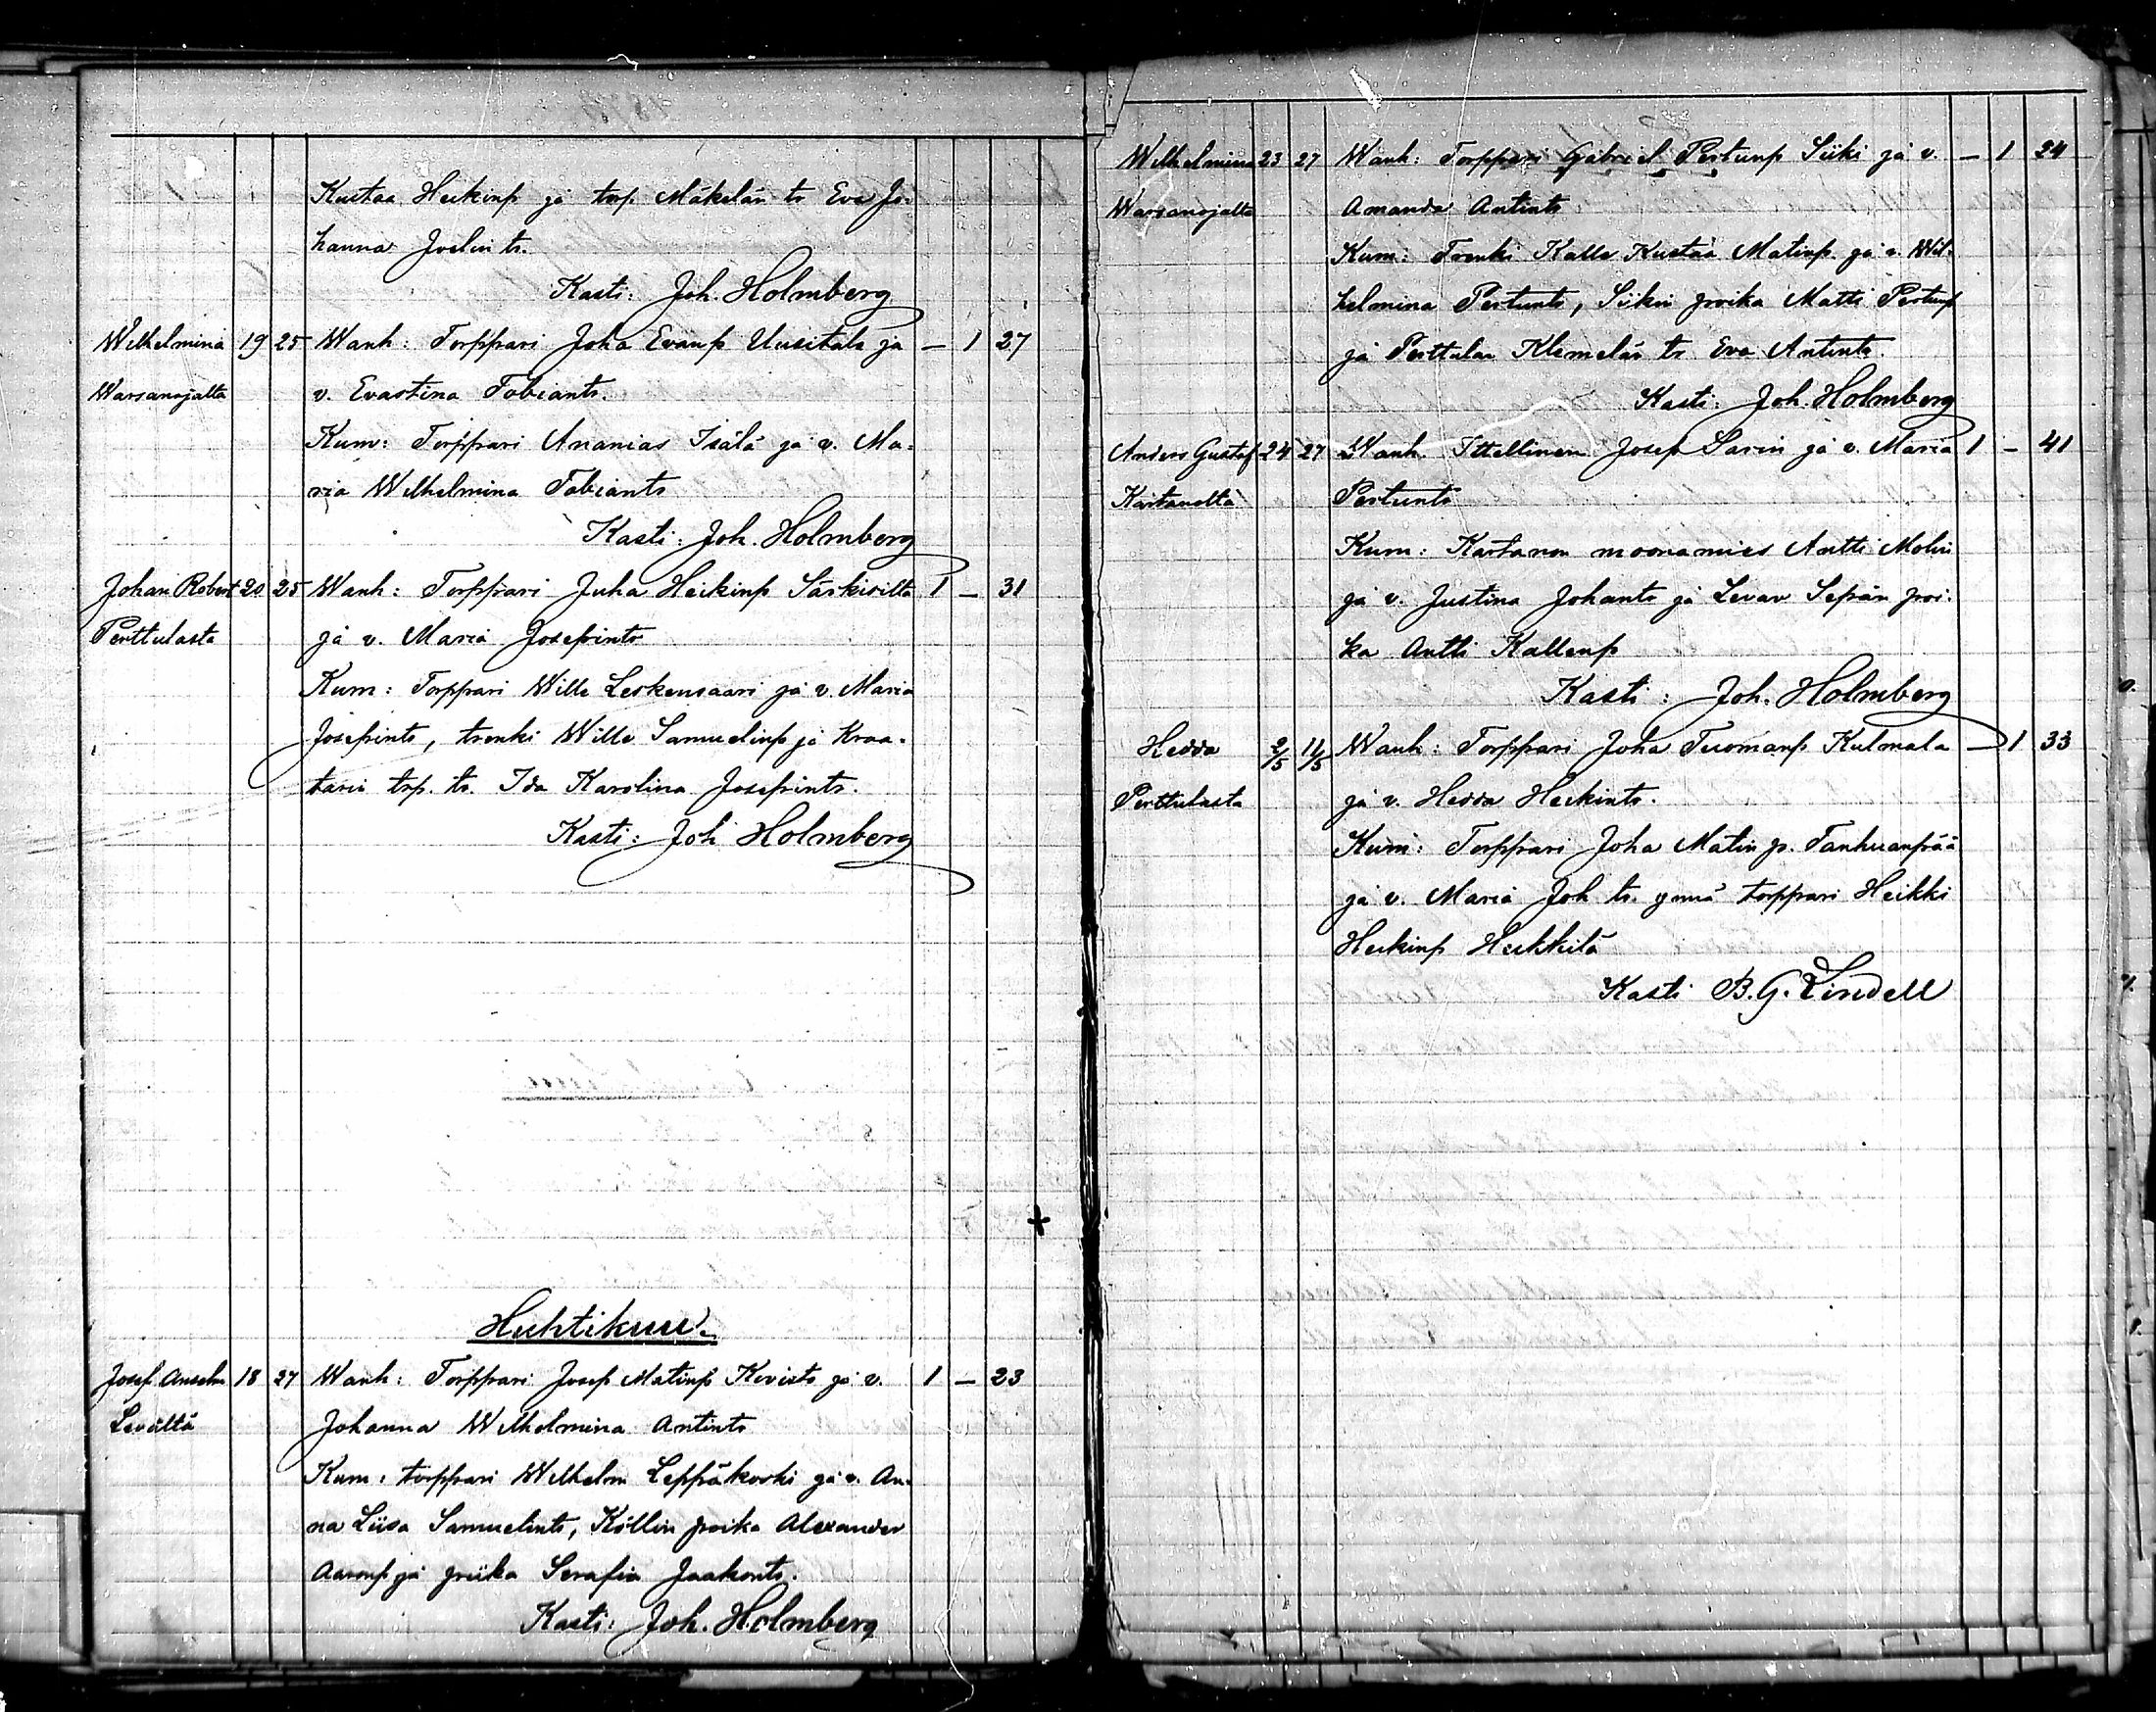 Kustaa Heikinp ja torp. Mäkelän tr Eva Jo-
hanna Joelin tr.
Kasti: Joh. Holmberg
Wilhelmina 19 25 Wanh: Torppari Joha Evanp Uusitalo ja — 1 27
Warsanojalta v. Evastina Tobiantr.
Kum: Torppari Ananias Isälä ja v. Ma-
ria Wilhelmina Tobiantr
Kasti: Joh. Holmberg
Johan Robert 20 25 Wanh: Torppari Juha Heikinp Särkisilta 1 — 31
Perttulasta ja v. Maria Josefintr
Kum: Torppari Wille Leskensaari ja v. Maria
Josefintr, trenki Wille Samuelinp ja Kraa-
tarin trp. tr. Ida Karolina Josefintr.
Kasti: Joh Holmberg
Huhtikuu.
Josef Anselm 18 27 Wanh: Torppari Josep Matinp Kivisto ja v. 1 — 23
Levältä Johanna Wilhelmina Antintr
Kum: torppari Wilhelm Leppäkoski ja v. An-
na Liisa Samuelintr, Köllin poika Alexander
Aaronp ja piika Serafia Jaakontr.
Kasti: Joh. Holmberg
Wilhelmina 23 27 Wanh: Torppari Gabriel Pertunp Siiki ja v. — 1 24
Warsanojalta Amanda Antintr
Kum: Trenki Kalle Kustaa Matinp. ja v. Wil-
helmina Pertuntr, Siikin poika Matti Pertunp
ja Perttulan Klemelän tr. Eva Antintr.
Kasti: Joh. Holmberg
Anders Gustaf 24 27 Wanh. Ittellinen Josep Sarin ja v. Maria 1 — 41
Kartanolta Pertuntr
Kum: Kartanon moonamies Antti Molin
ja v. Justina Johantr ja Levan Sepän poi-
ka Antti Kallenp
Kasti: Joh. Holmberg
Hedda 2/5 11/5 Wanh: Torppari Joha Tuomanp Kulmala — 1 33
Perttulasta ja v. Hedda Heikintr.
Kum: Torppari Joha Matin p. Tanhuanpää
ja v. Maria Joh tr. ynnä torppari Heikki
Heikinp Heikkilä
Kasti B. G. Lindell